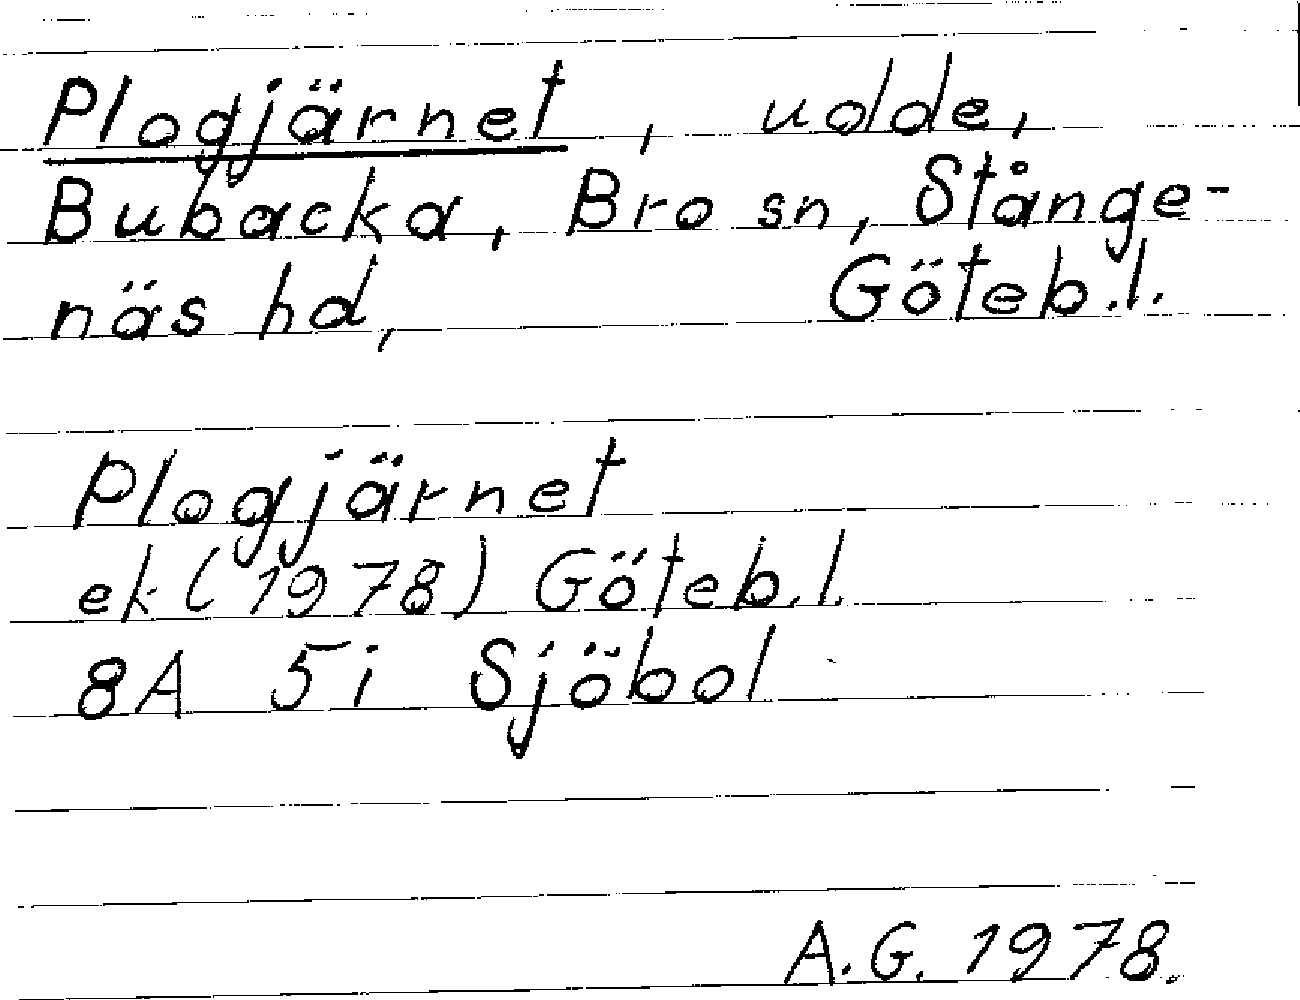 Plogjärnet, udde,
Bubacka, Bro sn, Stånge-
näs hd, Göteb.l.
Plogjärnet
ek (1978) Göteb.l.
8A 5i Sjöbol
A.G. 1978.